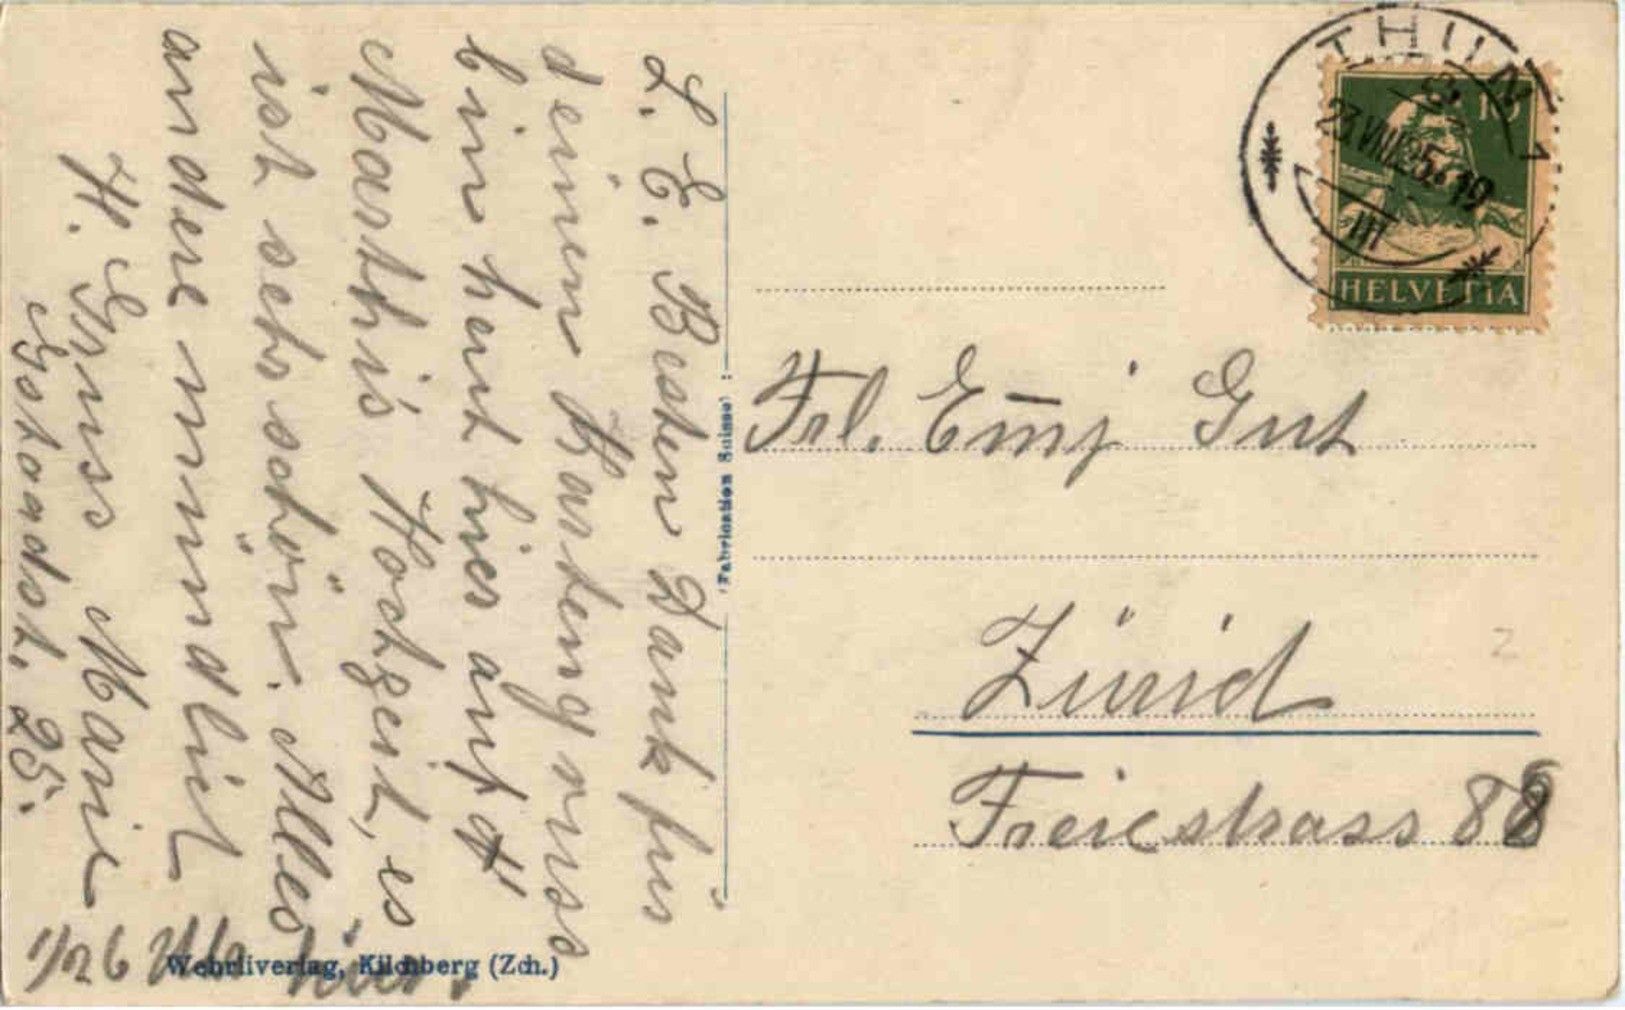 L. E. Besten Dank für
deinen Kartengruss
bin heut hier auf
Marthis Hochzeit, es
ist sehr schön. Alles
andere mündlich
H. Gruss Marie
Gstaadst. 25.
1/26 Uhr
Wehrliverlag, Kilchberg (Zch.)
Fabrication Suisse
THUN 1
23.VIII.25.-19
III
10
HELVETIA
Frl. Emj Gut
Zürich
Freiestrass 88
Z